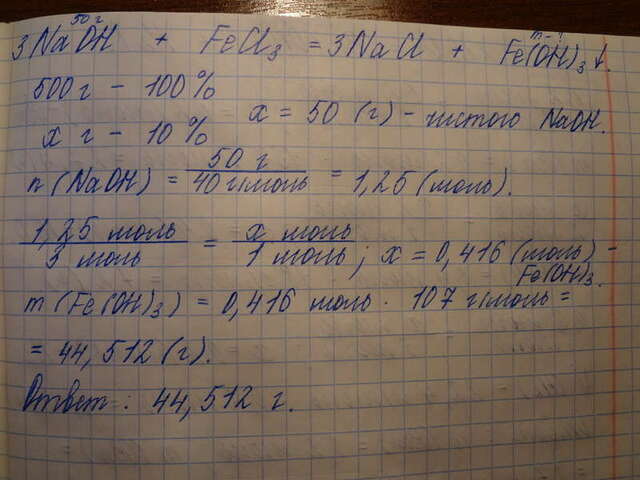 50 г m - ?
3NaOH + FeCl₃ = 3NaCl + Fe(OH)₃↓.
500 г - 100%
x г - 10% x = 50 (г) - чистого NaOH.
n(NaOH) = 50 г / 40 г/моль = 1,25 (моль).
1,25 моль / 3 моль = x моль / 1 моль ; x = 0,416 (моль) -
Fe(OH)₃.
m(Fe(OH)₃) = 0,416 моль · 107 г/моль =
= 44,512 (г).
Ответ: 44,512 г.